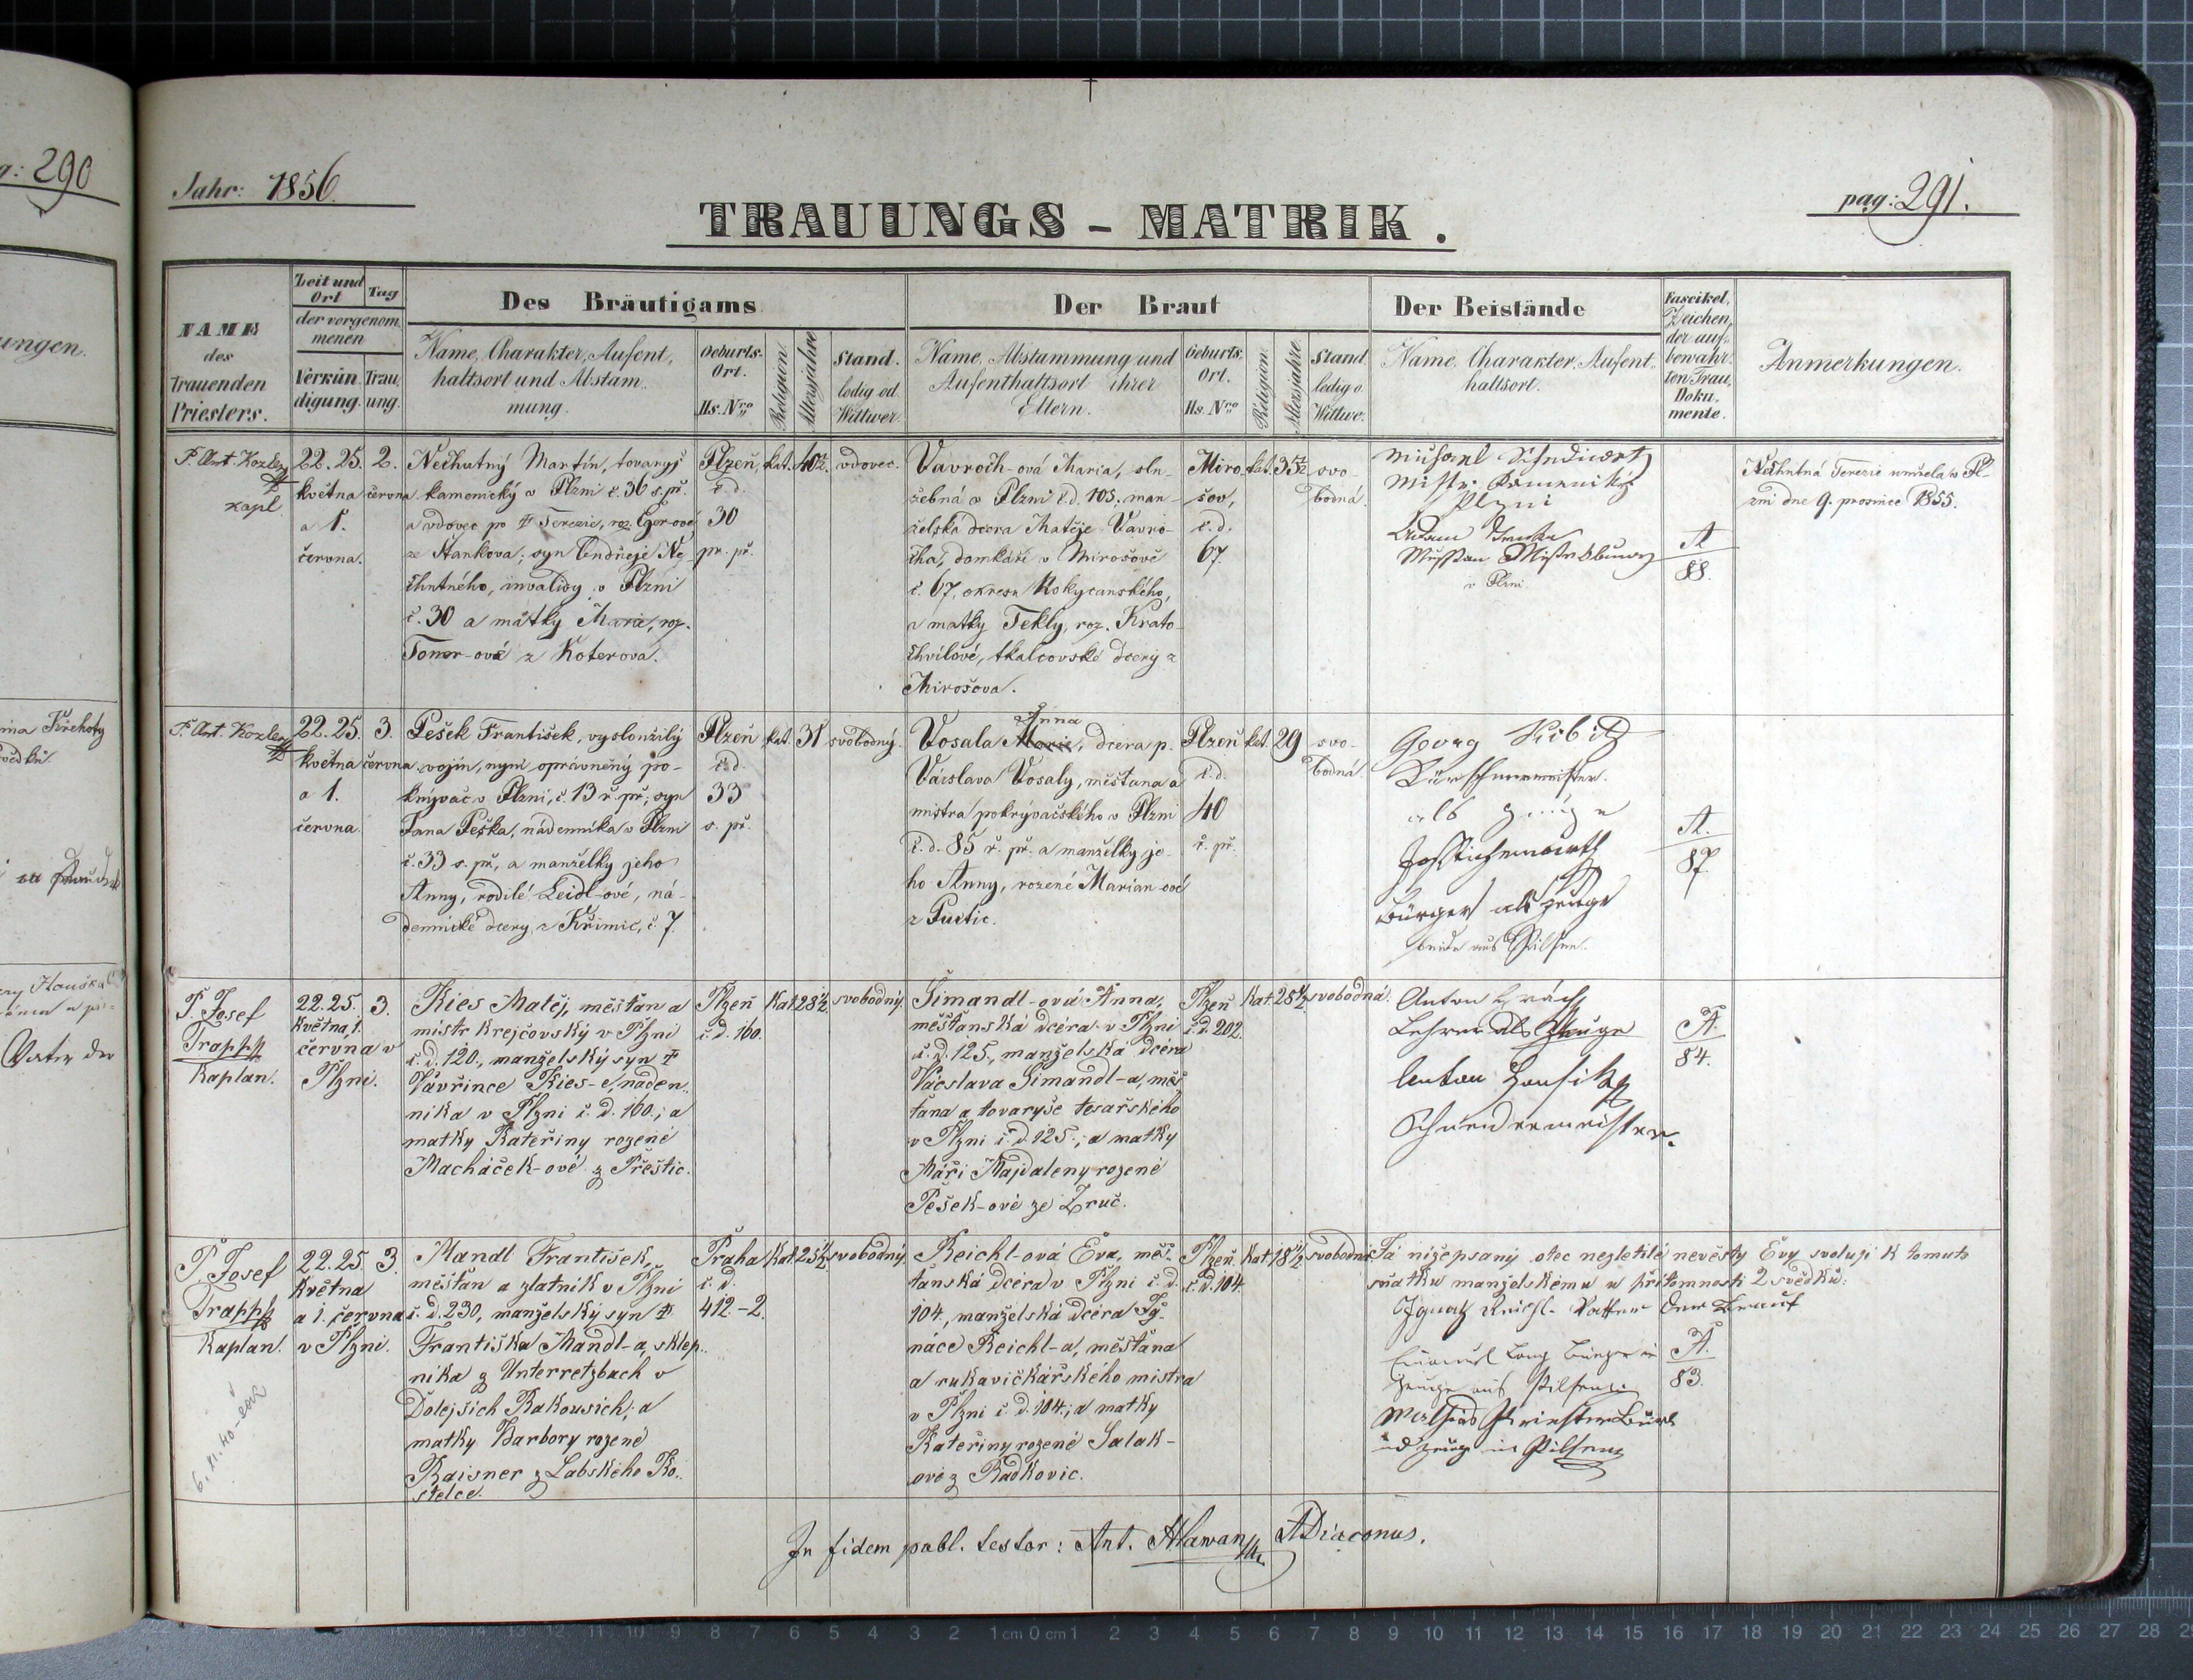 g: 290
ungen.
Křehoty
Vater der
Jahr: 1856.
pag: 291.
TRAUUNGS - MATRIK.
NAME
des
Trauenden
Priesters.
Zeit und
Ort
Tag
der vorgenom
menen
Verkün
digung.
Trau
ung.
Des Bräutigams
Name, Charakter, Aufent,
haltsort und Abstam
mung.
Geburts-
Ort.
Hs. Nro
Religion
Altersjahre
Stand.
ledig od.
Wittwer.
Der Braut
Name, Abstammung und
Aufenthaltsort ihrer
Eltern.
Geburts,
Ort.
Hs. Nro
Religion
Altersjahre
Stand
ledig o.
Wittwe.
Der Beistände
Name, Charakter, Aufent,
haltsort.
Fascikel,
Zeichen,
der auf
bewahr
ten Trau,
Doku,
mente.
Anmerkungen.
P. Ant. Kozler
kapl.
22. 25.
května
a 1.
června.
2.
června
Nechutný Martin, tovaryš
kamenický v Plzni č. 36 s. př.
a vdovec po † Terezie, roz.
ze Stankova; syn Ondřeje Ne
chutného, invalidy v Plzni
č. 30 a matky Marie, roz.
Toner-ová z Koterova.
Plzeň,
č. d.
30
pr. př.
kat.
40 1/2
vdovec.
Vavroch-ová Maria, slu-
žebná v Plzni č. d. 105, man
želská dcera Matěje Vavro-
cha, domkáře v Mirošově
č. 67, okresu Rokycanského,
a matky Tekly, roz. Krato-
chvílové, tkalcovské dcery z
Mirošova.
Miro
šov,
č. d.
67.
kat.
35 1/2
svo
bodná.
Plzni
Adam
v Plzni
A
88.
Nechutná Terezie umřela v Pl-
zni dne 9. prosince 1855.
P. Ant. Kozler
22. 25.
května
a 1.
června
3.
června
Pešek František, vysloužilý
vojín, nyní oprávněný po-
krývač v Plzni, č. 13 ř. př., syn
Jana Peška, nádenníka v Plzni
č. 33 s. př., a manželky jeho
Anny, rodilé Leidl-ové, ná-
dennické dcery z Křimic, č. 7.
Plzeň
č. d.
33
s. př.
kat.
31
svobodný.
Anna
Vosala Marie, dcera p.
Václava Vosaly, měšťana a
mistra pokrývačského v Plzni
č. d. 85 ř. př. a manželky je-
ho Anny, rozené Marian-ové
z
Plzeň
č. d.
40
ř. př.
kat.
29
svo-
bodná.
Georg Kibitz
Kürschnermeister.
als Zeuge
Bürger als Zeuge
beide aus Pilsen.
A.
87.
P. Josef
Trapp
Kaplan.
22. 25.
Května, 1.
června v
Plzni.
3.
Kies Matěj, měšťan a
mistr krejčovský v Plzni
č. d. 120., manželský syn †
Vavřince Kies-e, náden.
níka v Plzni č. d. 160.; a
matky Kateřiny rozené
Macháček-ové z Přeštic.
Plzeň
č. d. 160.
Kat.
28 1/2
svobodný.
Simandl-ová Anna,
měšťanská dcéra v Plzni
č. d. 125., manželská dcéra
Václava Simandl-a, měš
ťana a tovaryše tesařského
v Plzni č. d. 125.; a matky
Máři Majdaleny rozené
Pešek-ové ze Zruč.
Plzeň
č. d. 202.
Kat.
28 1/2
svobodná.
Anton
Lehrer als Zeuge
Anton
Schneidermeister.
A.
84.
P. Josef
Trapp
Kaplan.
22. 25.
Května
a 1. června
v Plzni.
3.
Mandl František,
měšťan a zlatník v Plzni
č. d. 230, manželský syn †
Františka Mandl-a, sklep..
nika z Unterretzbach v
Dolejších Rakousích; a
matky Barbory rozené
Raisner z Labského Ko..
stelce.
Praha
č. d.
412.-2.
Kat.
25 1/2
svobodný.
Reichl-ová Eva, měš.
ťanská dcéra v Plzni č. d.
104., manželská dcéra Ig.
náce Reichl-a, měšťana
a rukavičkářského mistra
v Plzni č. d. 104.; a matky
Kateřiny rozené Salak-
ové z Radkovic.
Plzeň.
č. d. 104.
Kat.
18 1/2
svobodná.
Já nížepsaný otec nezletilé nevěsty Evy svoluji k tomuto
sňatku manželskému u přítomnosti 2 svědků:
Ignatz Reichl Vatter der Braut
Emanuel Lang Bürger
Zeuge aus Pilsen
Mathias
Zeuge in Pilsen
A.
83.
In fidem publ. testor: Ant. Hlawan ADiaconus.